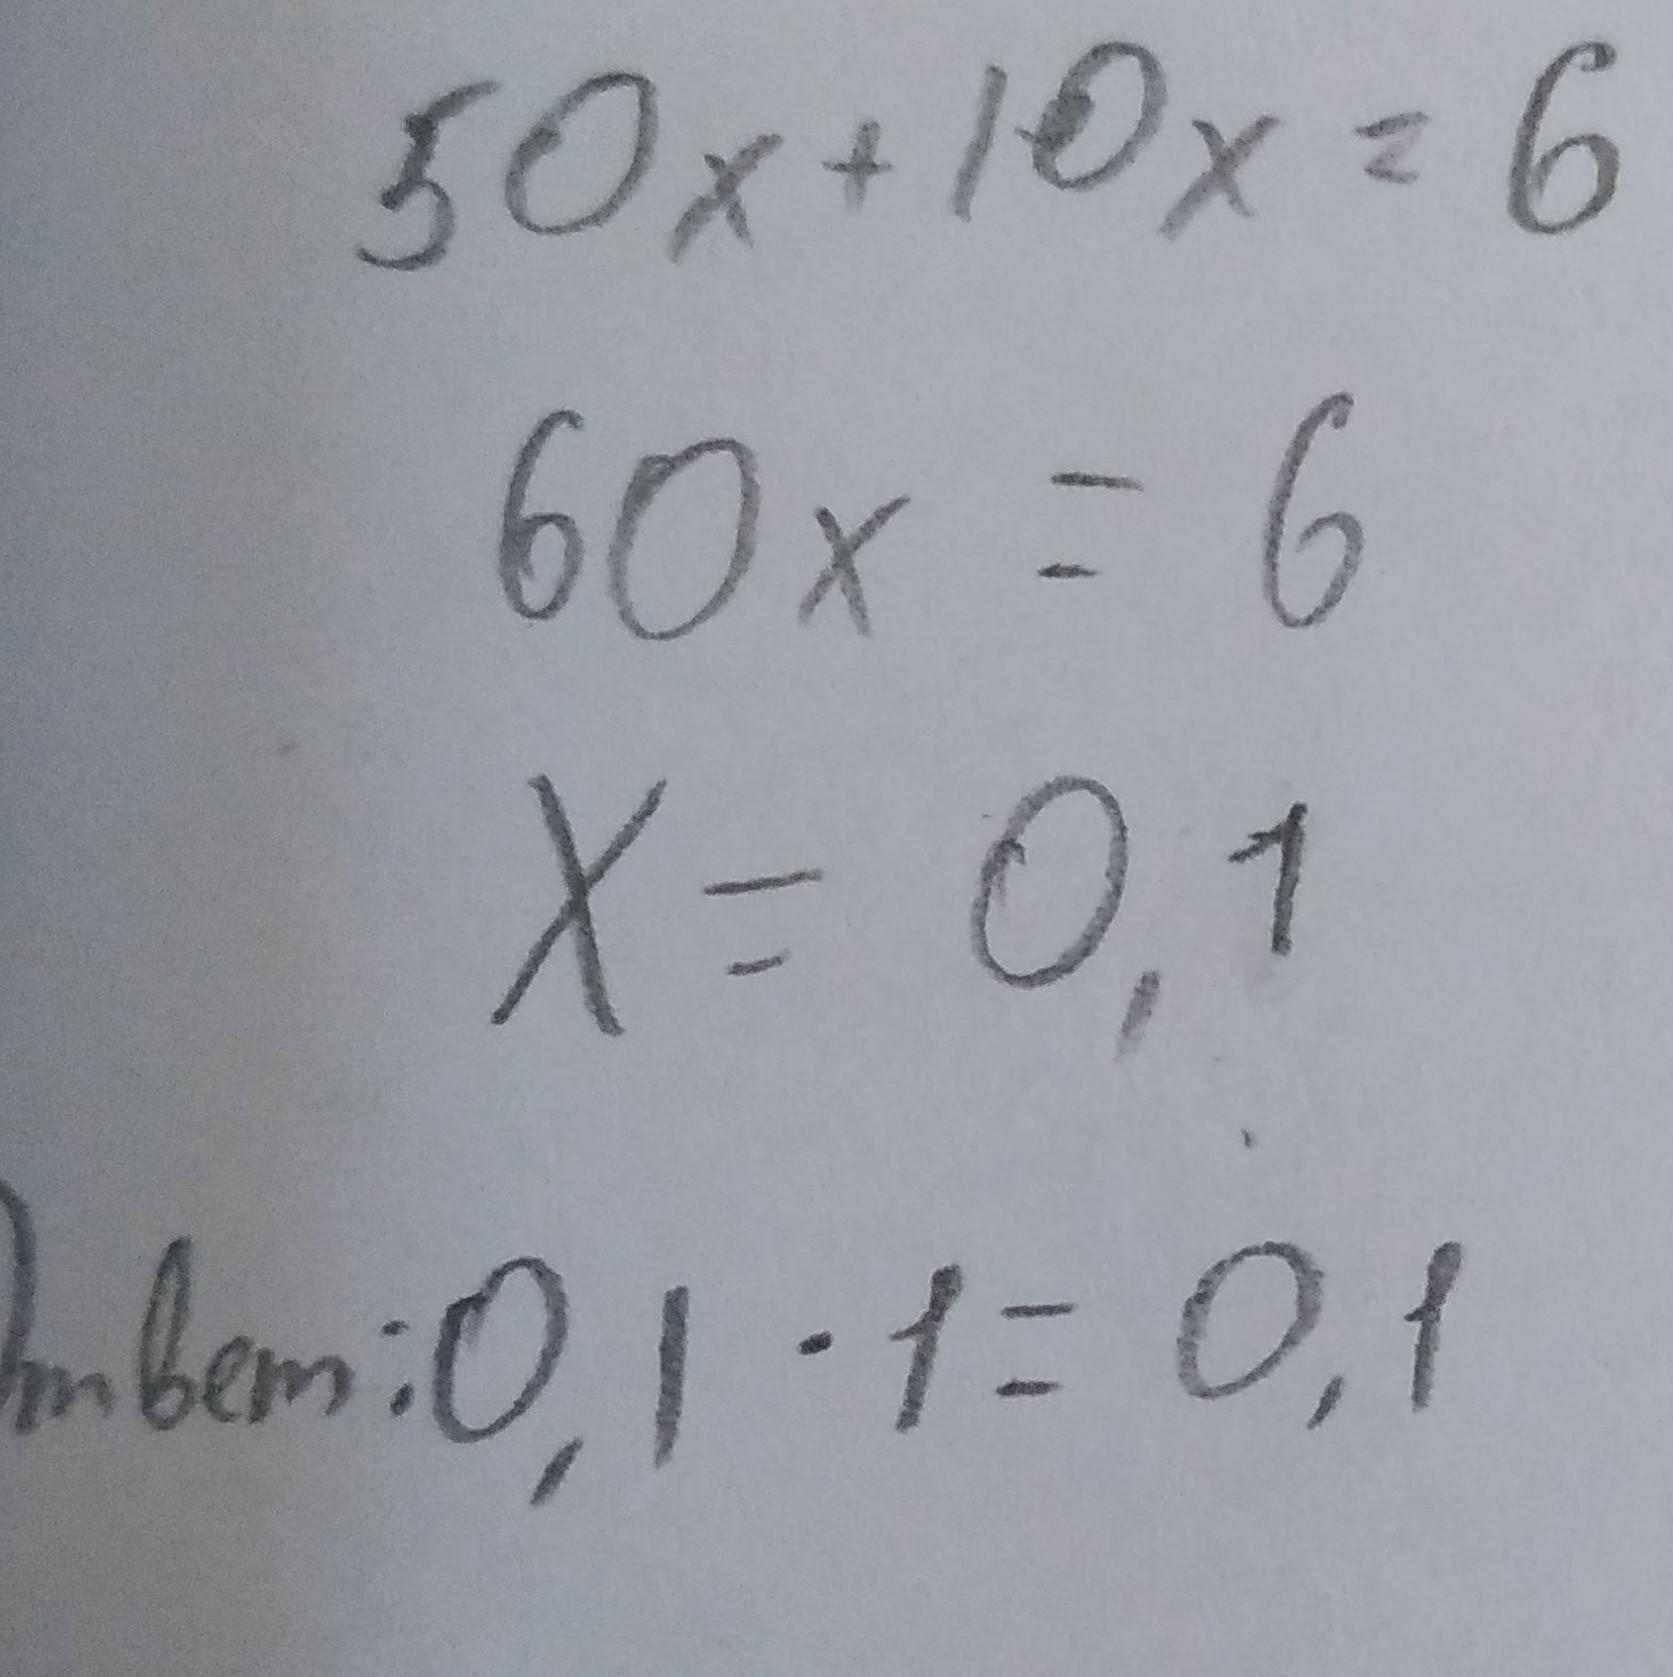 50x+10x=6
60x = 6
X= 0,1
Ответ: 0,1 · 1 = 0,1